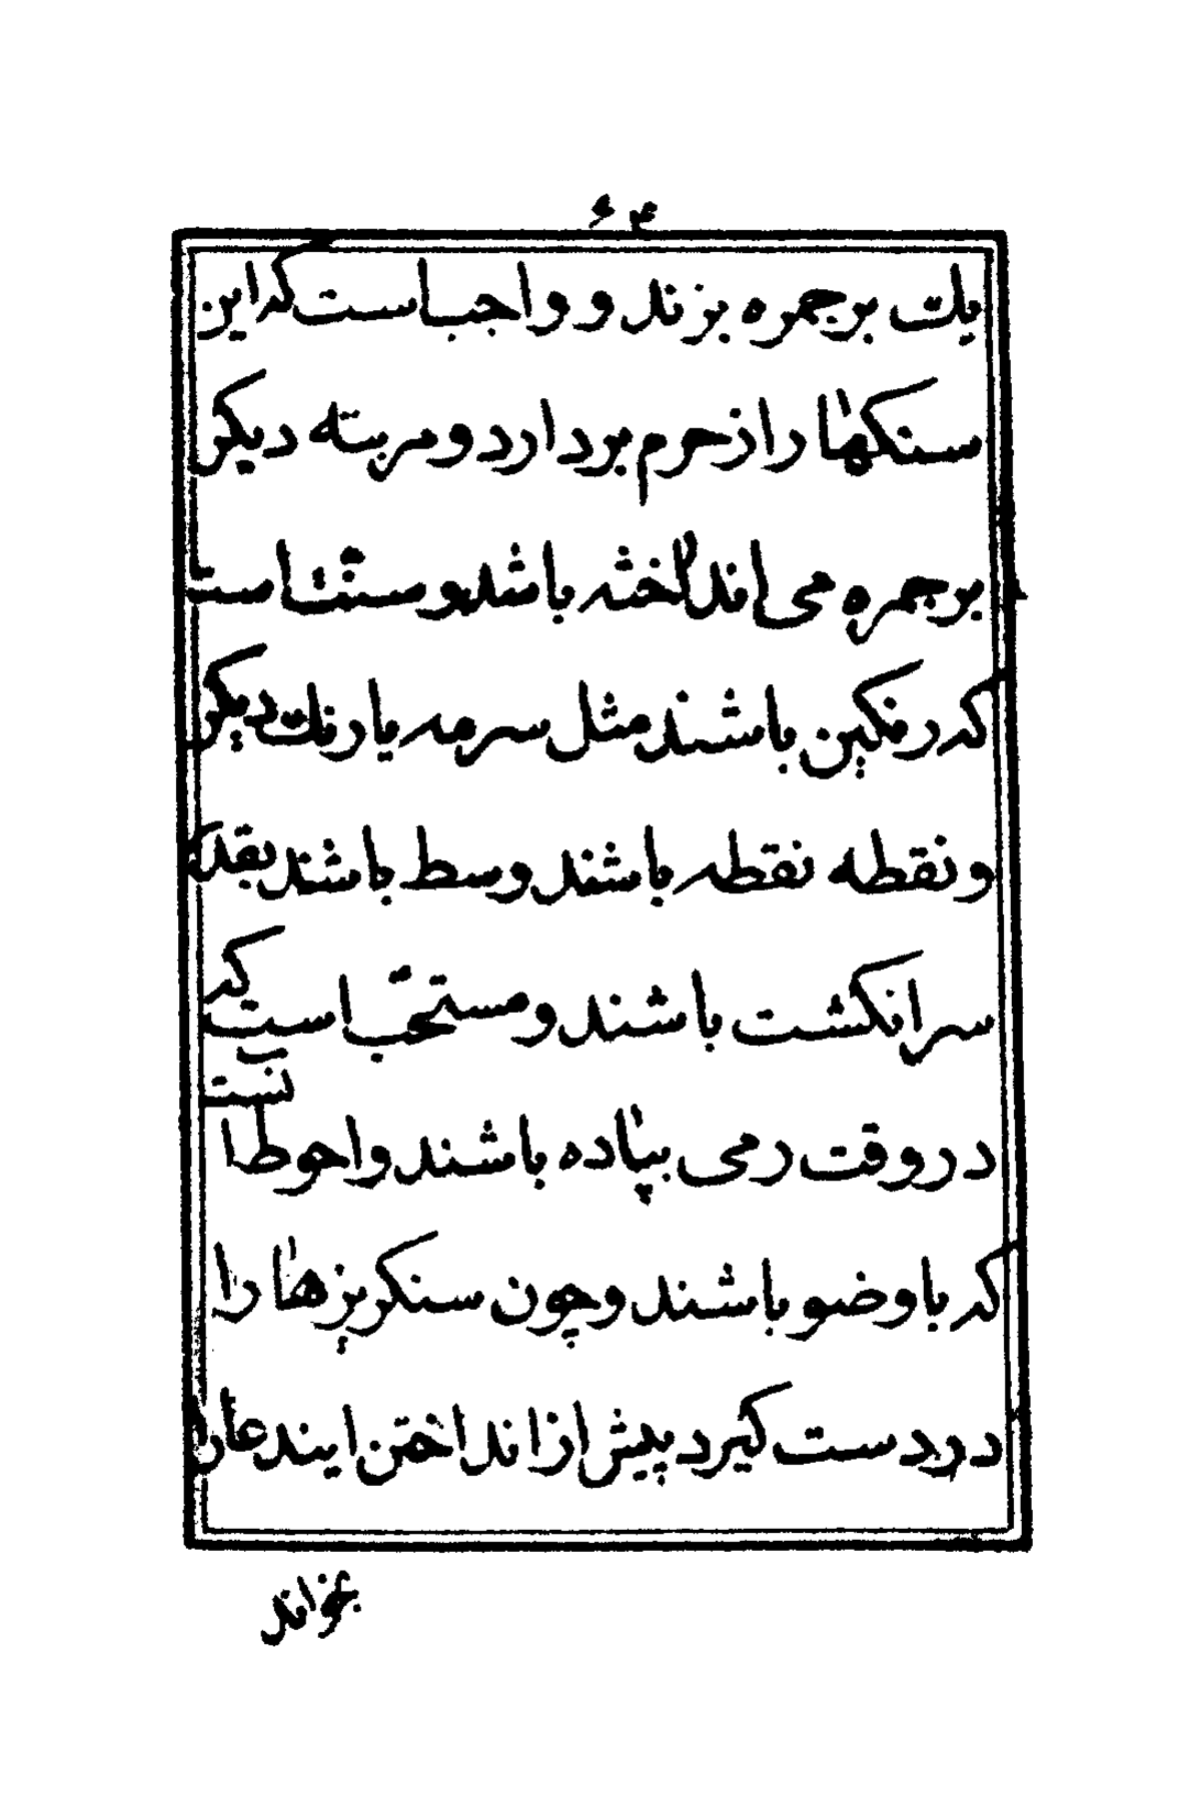 ۶۴
یك بر جمره بزند و واجب است که این
سنکها را از حرم بردارد و مرتبه دیکر
بر جمره می انداخته باشد و سنّت است
که رنکین باشند مثل سرمه یا رنك دیکر
و نقطه نقطه باشند و سط باشند بقدر
سر انکشت باشند و مستحّب است که
در وقت رمی پیاده باشند و احوط انست
که با وضو باشند و چون سنکریزها را
در دست کیرد پیش از انداختن ایند عا را
بخواند